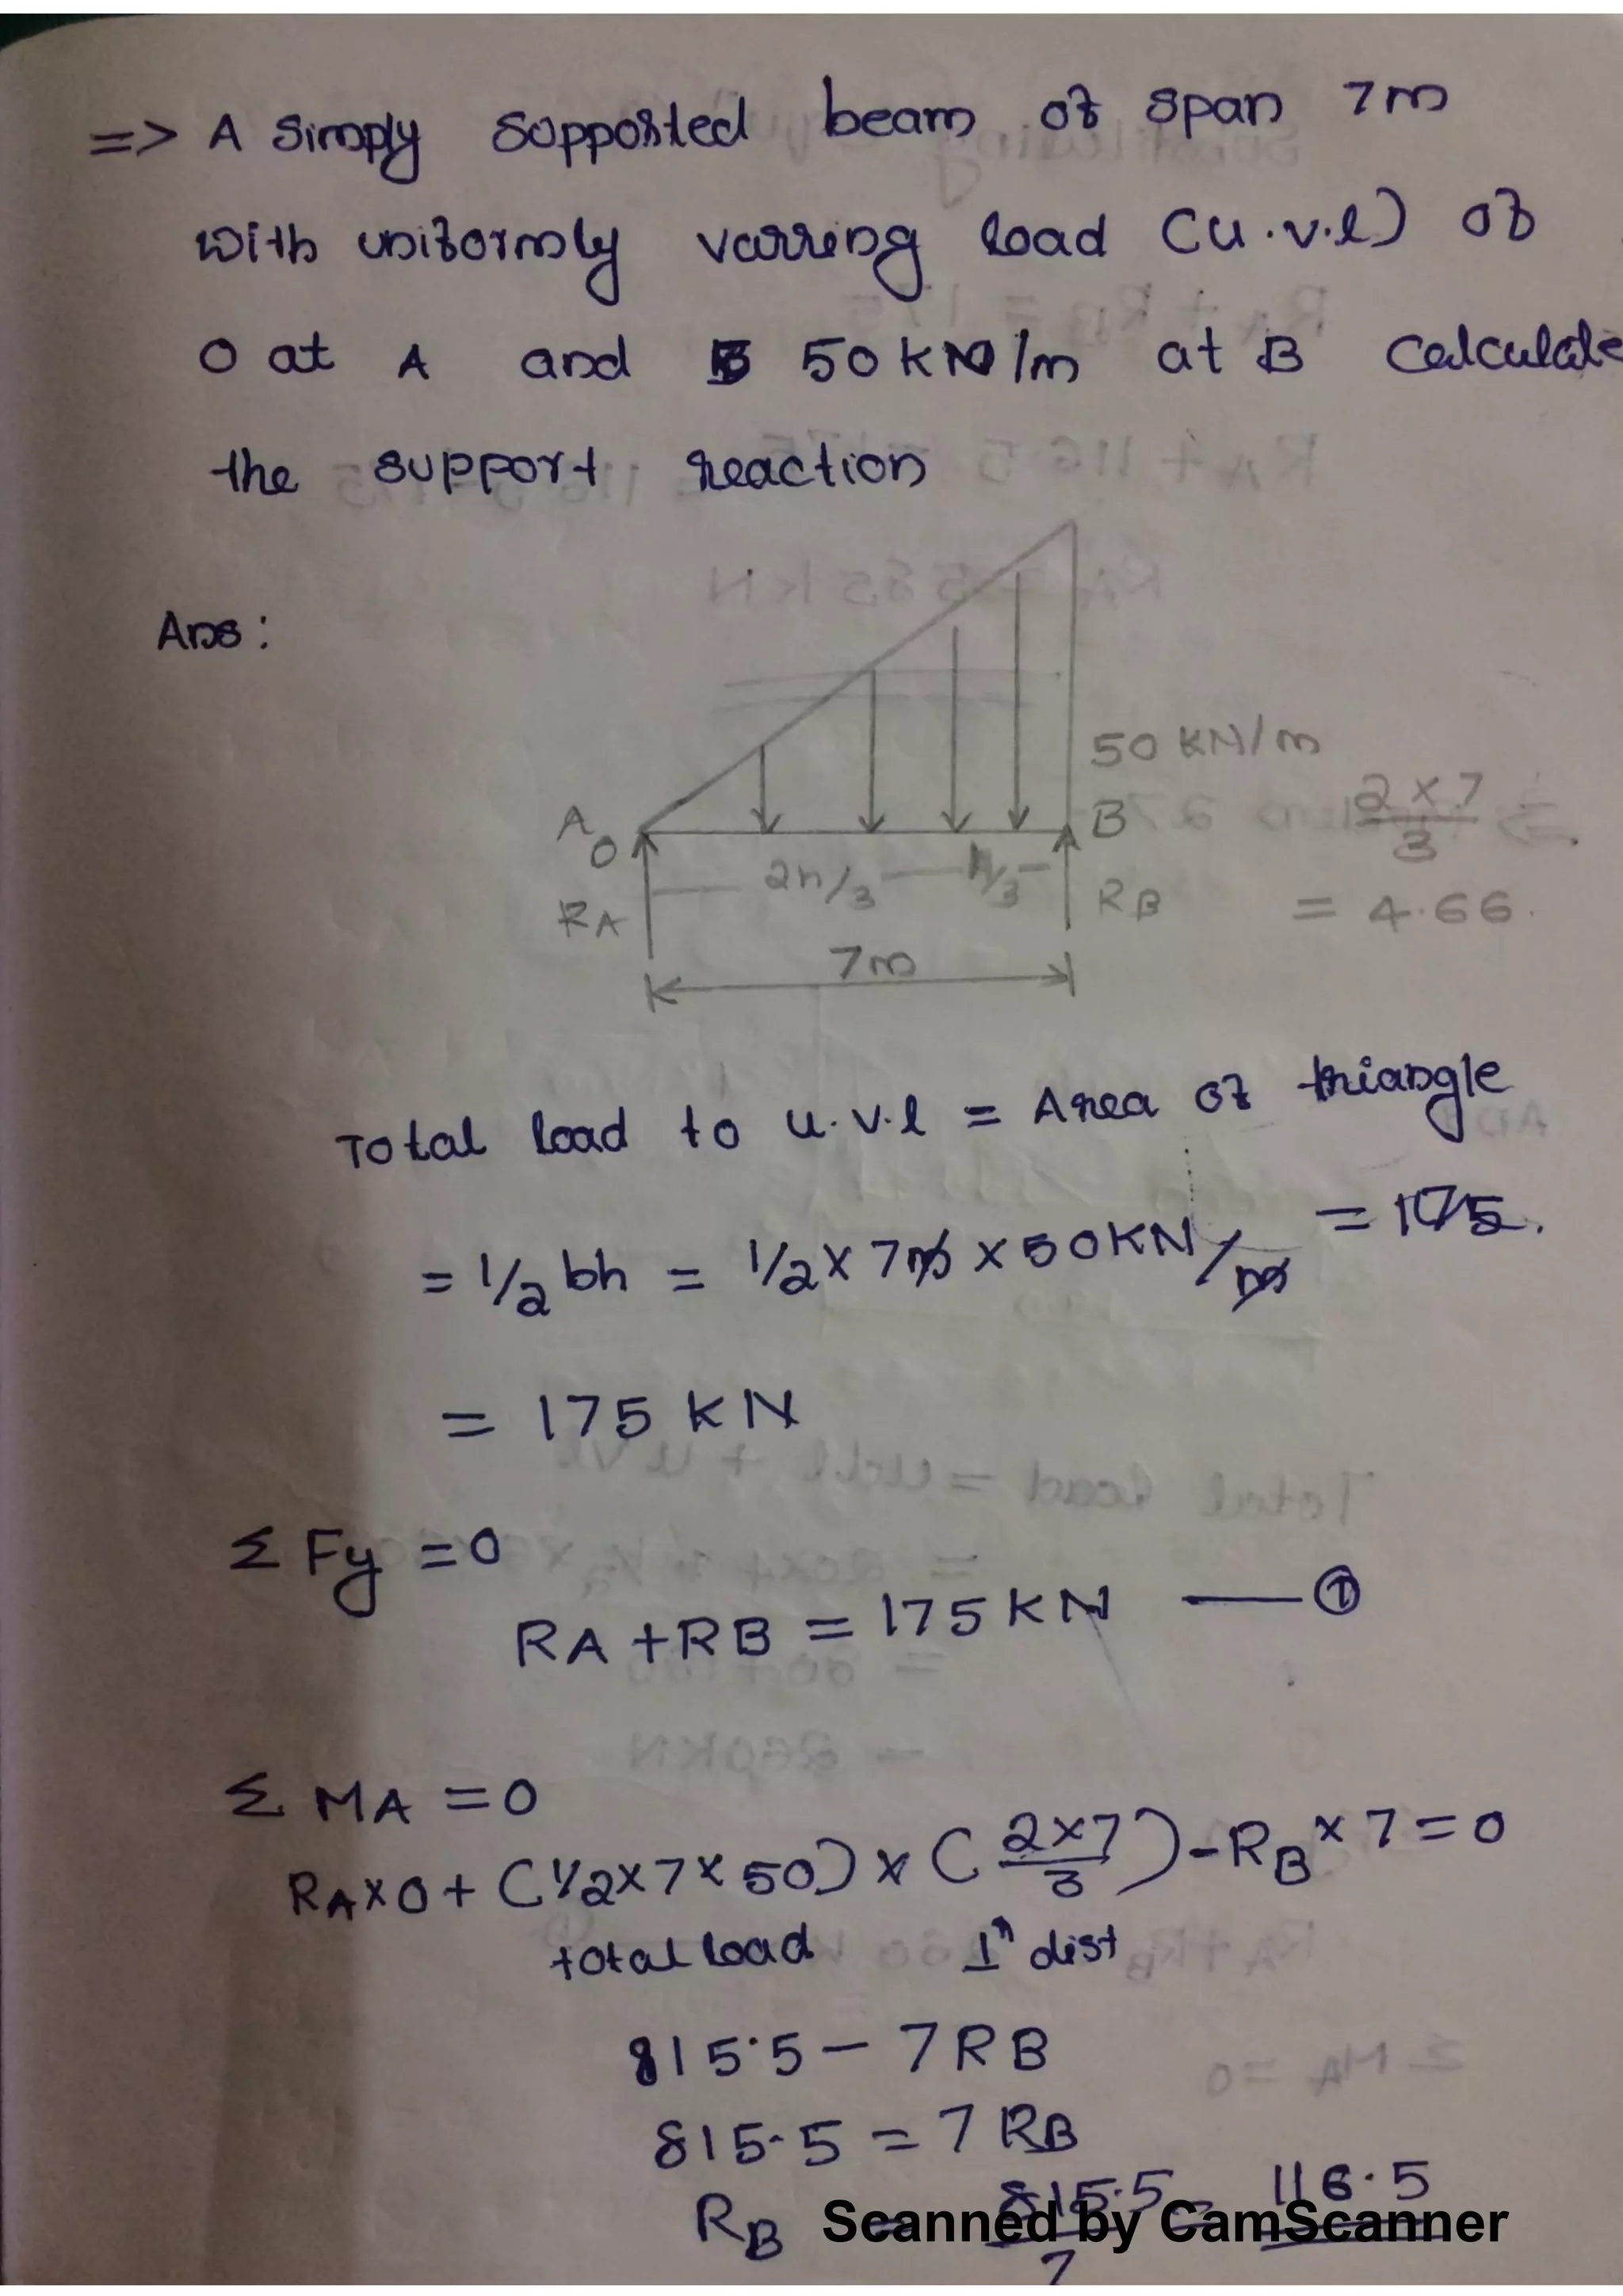 => A simply supported beam of span 7m
with uniformly varring load (u.v.l) of
0 at A and 50 KN/m at B calculate
the support reaction
Ans:
50 KN/m
A
0
B
2×7/3
2h/3
h/3
RA
RB
= 4.66.
7m
Total load to u.v.l = Area of triangle
= 1/2 bh = 1/2 × 7m × 50KN/m = 175.
= 175 KN
Σ Fy = 0
RA + RB = 175 KN — ①
Σ MA = 0
RA×0 + (1/2×7×50) × (2×7/3) - RB × 7 = 0
total load dist
815.5 - 7RB
815.5 = 7 RB
RB = 815.5/7 = 116.5
Scanned by CamScanner